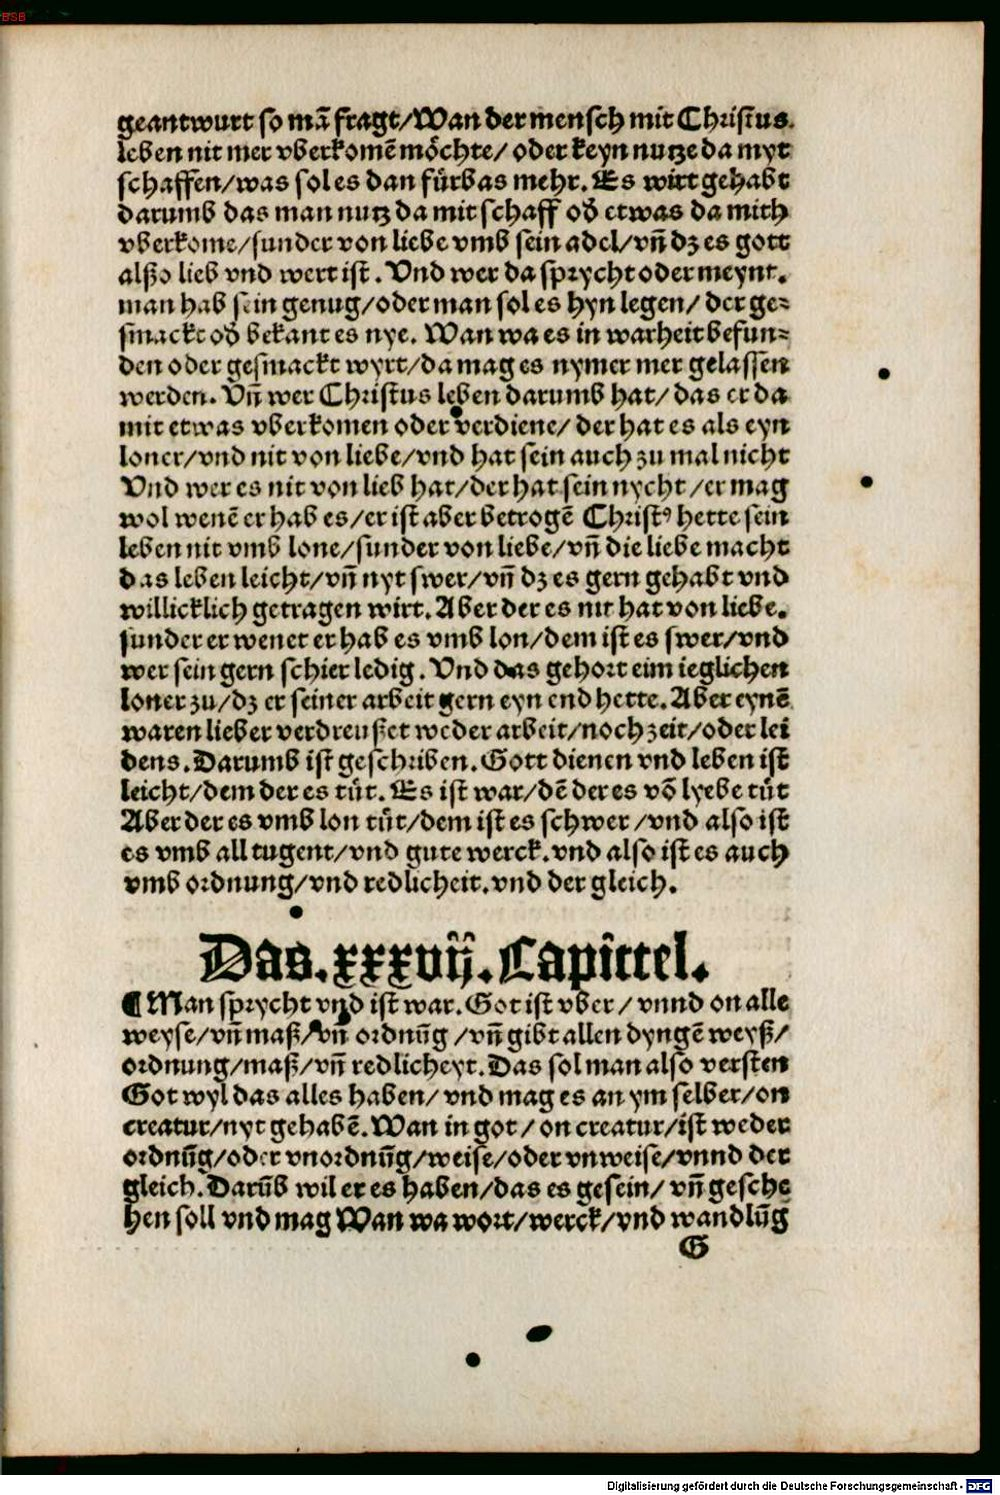 BSB
geantwurt so mā fragt/Wan der mensch mit Christus.
leben nit mer vberkomē möchte/ oder keyn nutze da myt
schaffen/was sol es dan fürbas mehr. Es wirt gehabt
darumb das man nutz da mit schaff oď etwas da mith
vberkome/sunder von liebe vmb sein adel/vñ dz es gott
alßo lieb vnd wert ist. Vnd wer da sprycht oder meynt.
man hab sein genug/oder man sol es hyn legen/ der ge⸗
smackt oď bekant es nye. Wan wa es in warheit befun⸗
den oder gesmackt wyrt/da mag es nymer mer gelassen
werden. Vñ wer Christus leben darumb hat/ das er da
mit etwas vberkomen oder verdiene/ der hat es als eyn
loner/vnd nit von liebe/vnd hat sein auch zu mal nicht
Vnd wer es nit von lieb hat/der hat sein nycht /er mag
wol wenē er hab es/er ist aber betrogē Christꝰ hette sein
leben nit vmb lone/sunder von liebe/vñ die liebe macht
das leben leicht/vñ nyt swer/vñ dz es gern gehabt vnd
willicklich getragen wirt. Aber der es nit hat von liebe.
sunder er wenet er hab es vmb lon/dem ist es swer/vnd
wer sein gern schier ledig. Vnd das gehort eim ieglichen
loner zu/dz er seiner arbeit gern eyn end hette. Aber eynē
waren lieber verdreußet weder arbeit/noch zeit/oder lei
dens. Darumb ist geschriben. Gott dienen vnd leben ist
leicht/dem der es tüt. Es ist war/dē der es vō lyebe tüt
Aber der es vmb lon tüt/dem ist es schwer /vnd also ist
es vmb all tugent/vnd gute werck. vnd also ist es auch
vmb ordnung/vnd redlicheit. vnd der gleich.
Das. xxxvij. Capittel.
¶ Man sprycht vnd ist war. Got ist vber / vnnd on alle
weyse/vñ maß/vñ ordnūg /vñ gibt allen dyngē weyß/
ordnung/maß/vñ redlicheyt. Das sol man also versten
Got wyl das alles haben/ vnd mag es an ym selber/on
creatur/nyt gehabē. Wan in got / on creatur/ist weder
ordnūg/oder vnordnūg/weise/oder vnweise/vnnd der
gleich. Darūb wil er es haben/das es gesein/ vñ gesche
hen soll vnd mag Wan wa wort/werck/vnd wandlūg
G
Digitalisierung gefördert durch die Deutsche Forschungsgemeinschaft - DFG